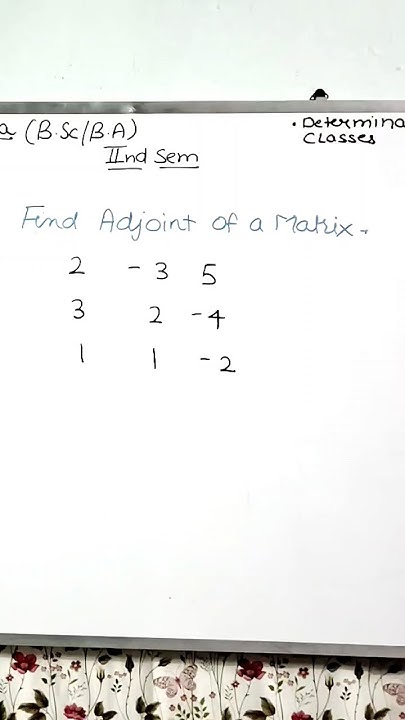 (B.Sc/B.A)
IInd Sem
• Determina
Classes
Find Adjoint of a Matrix.
2 -3 5
3 2 -4
1 1 -2